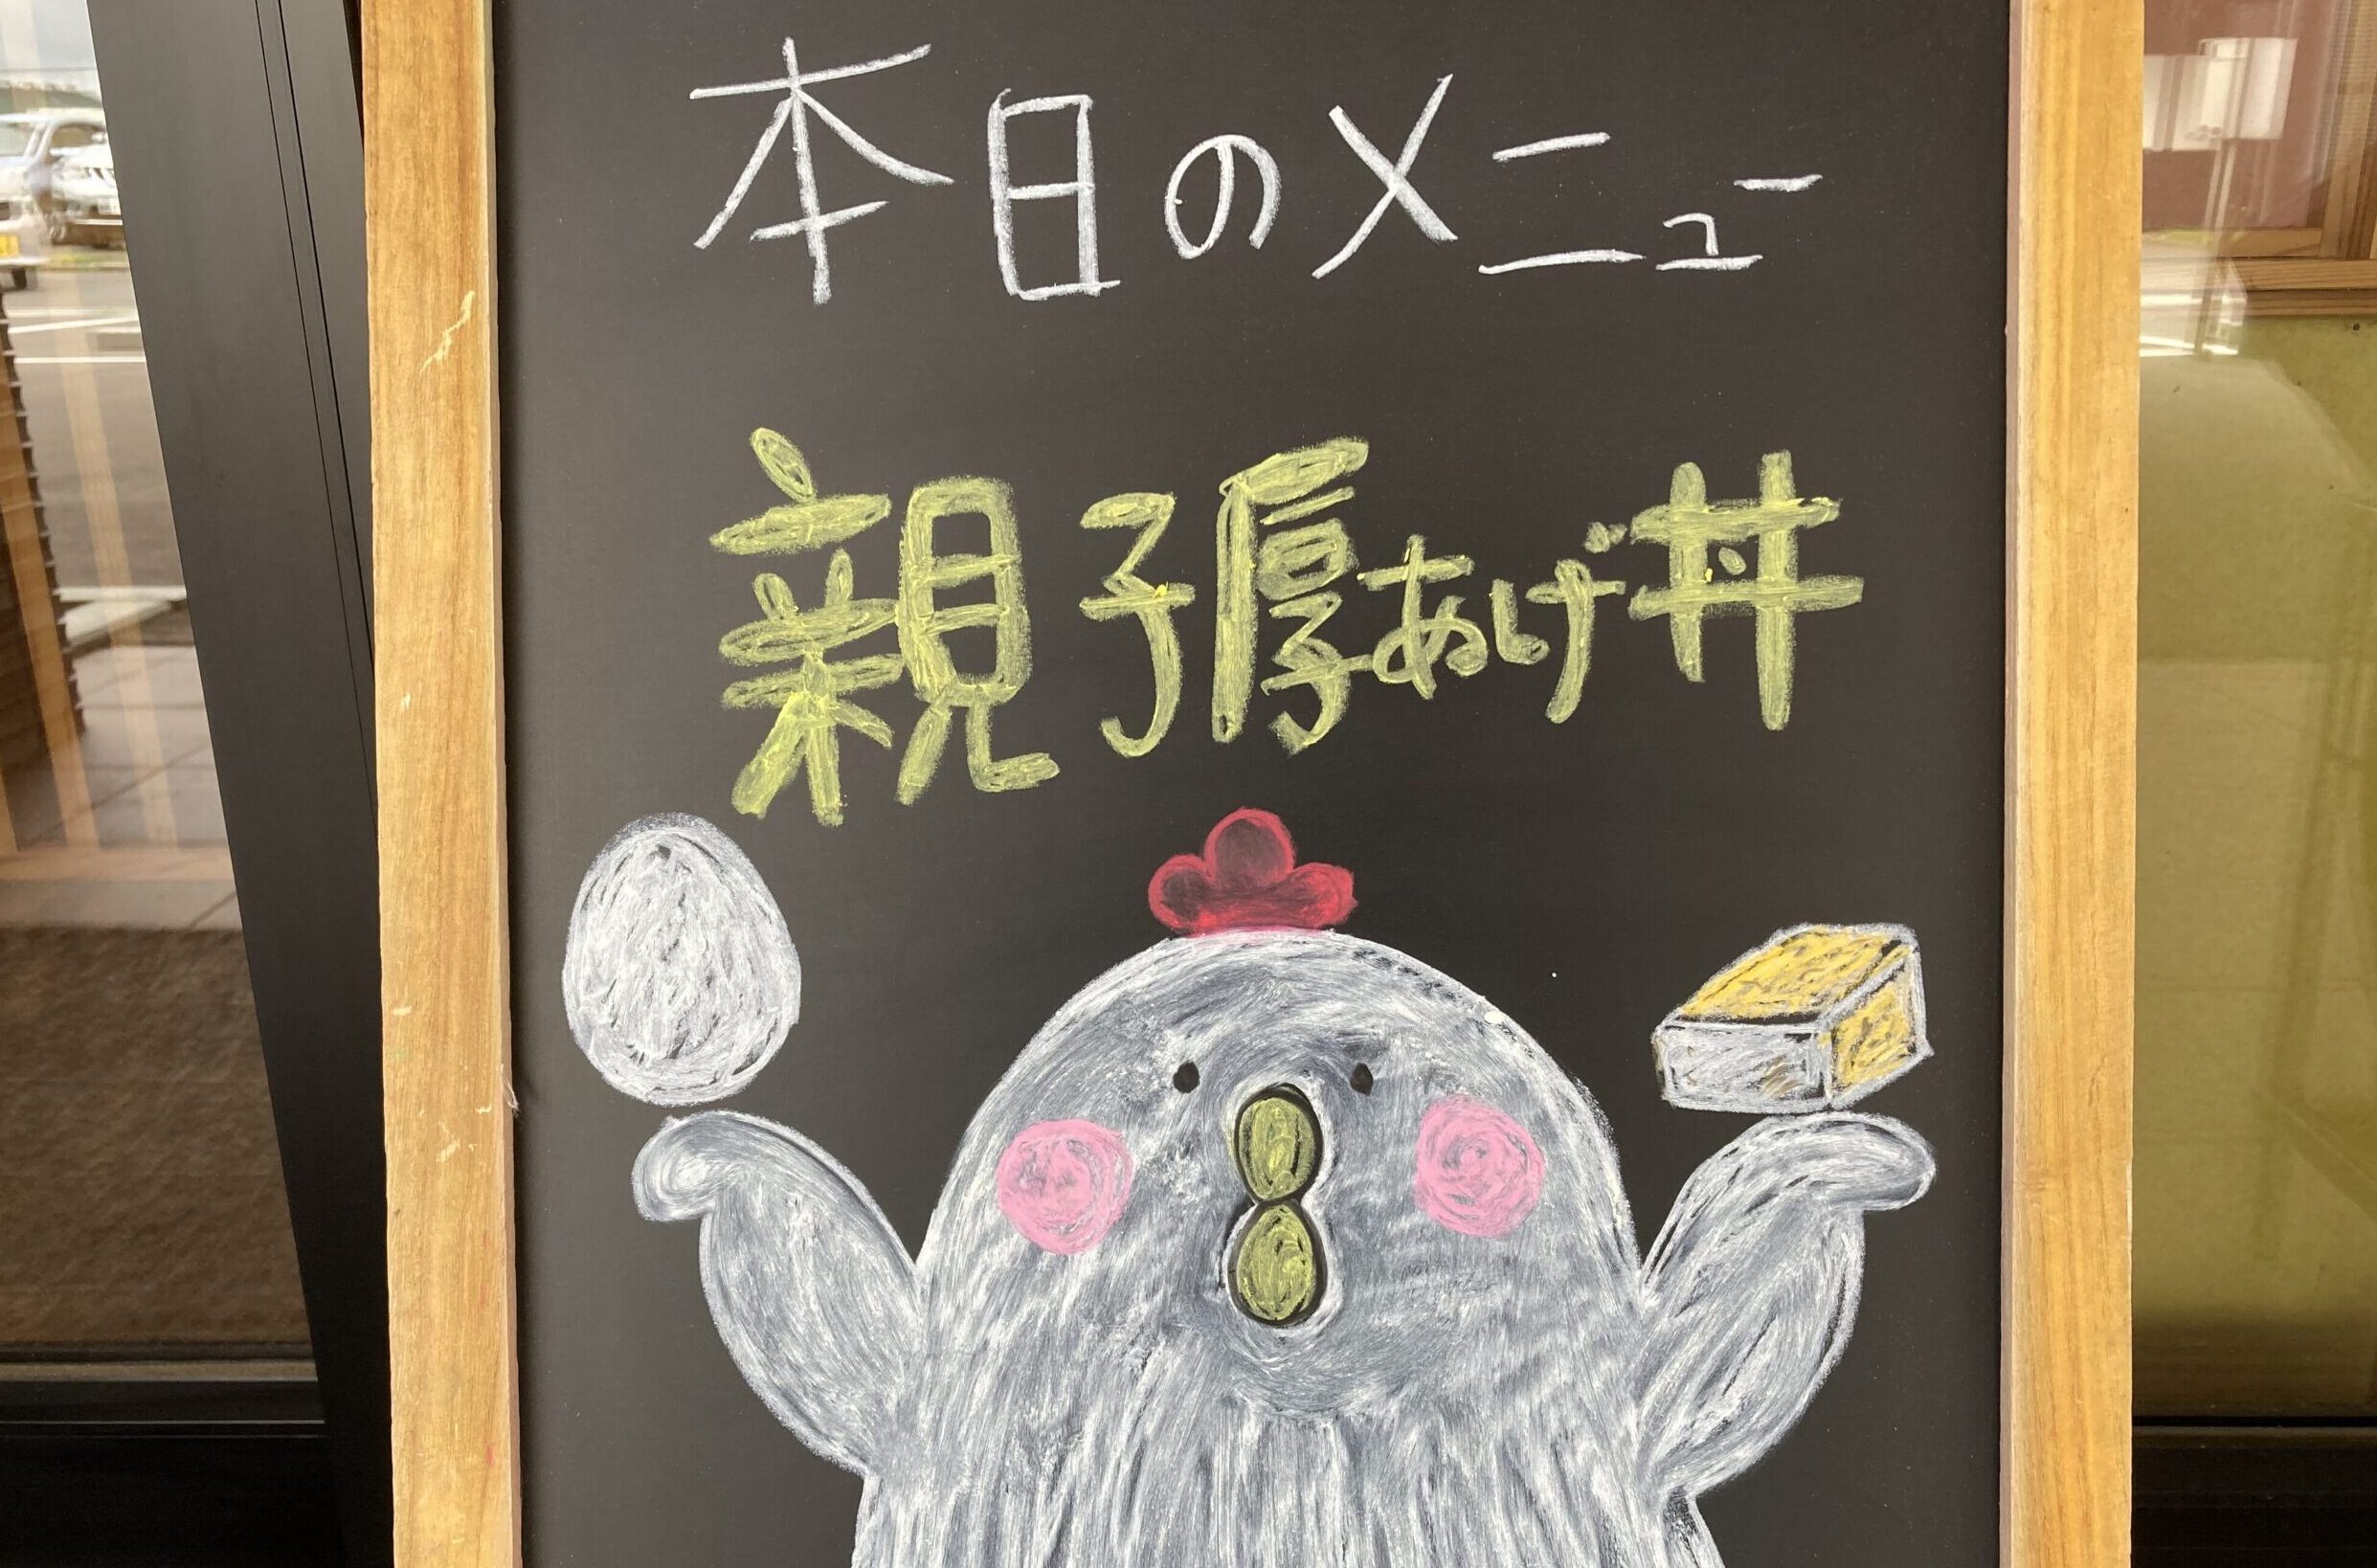 本日のメニュー
親子厚あげ丼